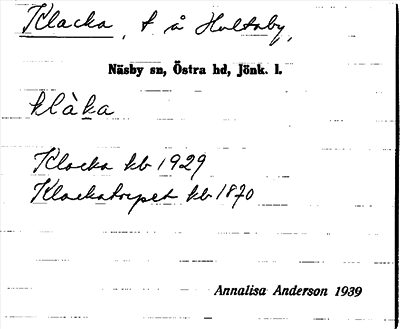 Klacka, t. å Hultaby,
Näsby sn, Östra hd, Jönk. l.
klàka
Klacka kb 1929
Klackatorpet kb 1870
Annalisa Anderson 1939